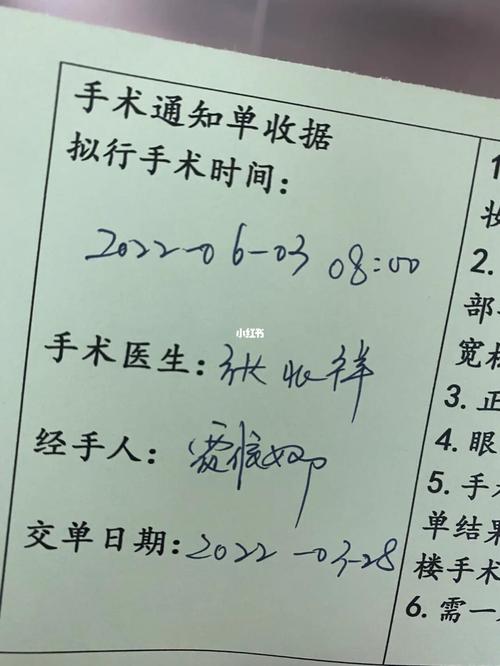 手术通知单收据
拟行手术时间：
2022-06-03 08:00
小红书
手术医生：张
经手人：
交单日期：2022-03-28
1
妆
2.
部
宽松
3. 正
4. 眼
5. 手术
单结果
楼手术
6. 需一